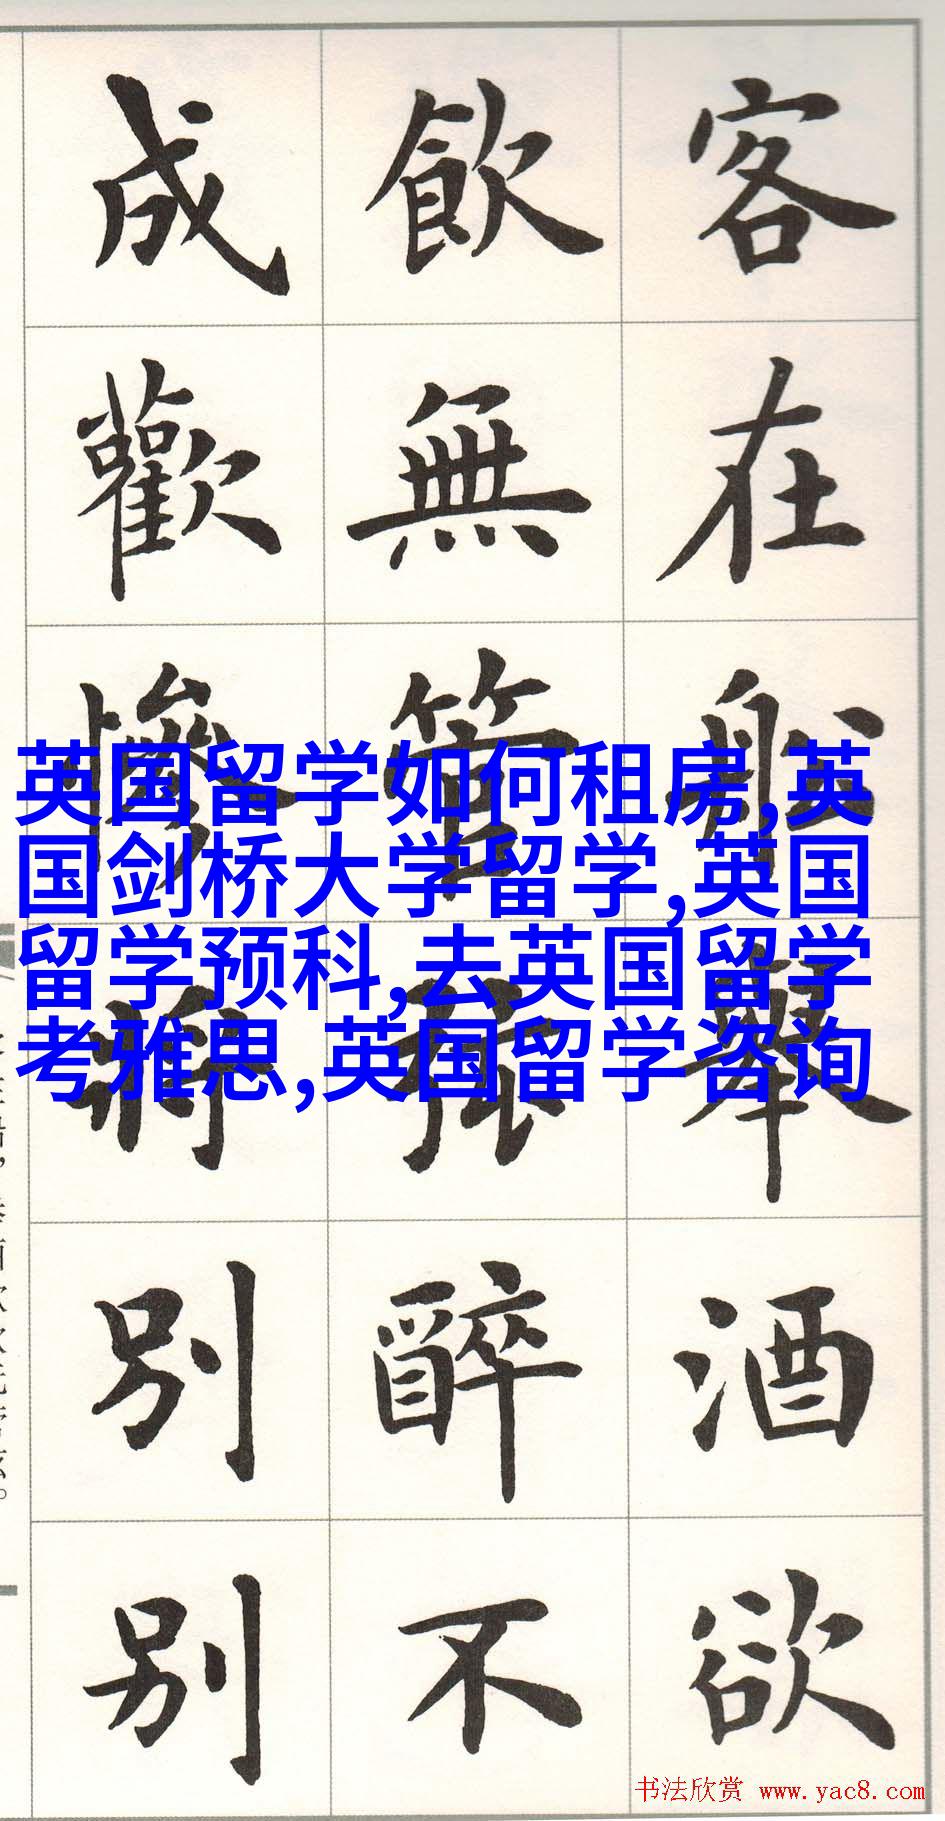 客在船舉酒欲
飲無管弦醉不
成歡慘將別別
英国留学如何租房,英
国剑桥大学留学,英国
留学预科,去英国留学
考雅思,英国留学咨询
书法欣赏 www.yac8.com